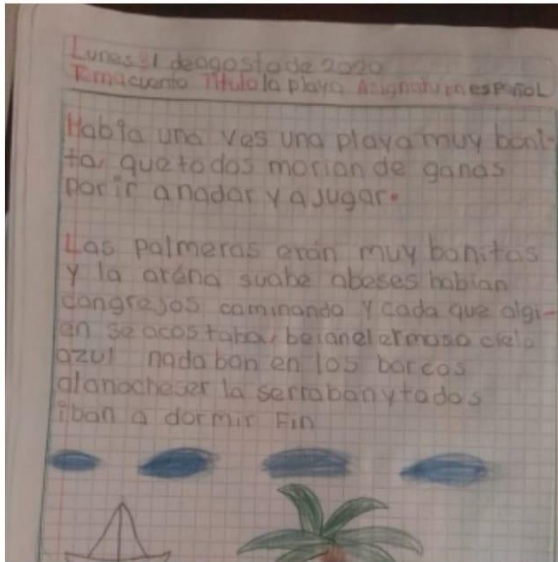 Lunes 31 de agosto de 2020
Tema cuento Titulo la playa Asignatura español
Había una ves una playa muy boni-
ta, que todos morian de ganas
por ir a nadar y a jugar.
Las palmeras erán muy bonitas
y la aréna suabe abeses habian
cangrejos caminando y cada que algi-
en se acostaba, beian el ermoso cielo
azul nadaban en los barcos
al anocheser la serraban y todos
iban a dormir Fin